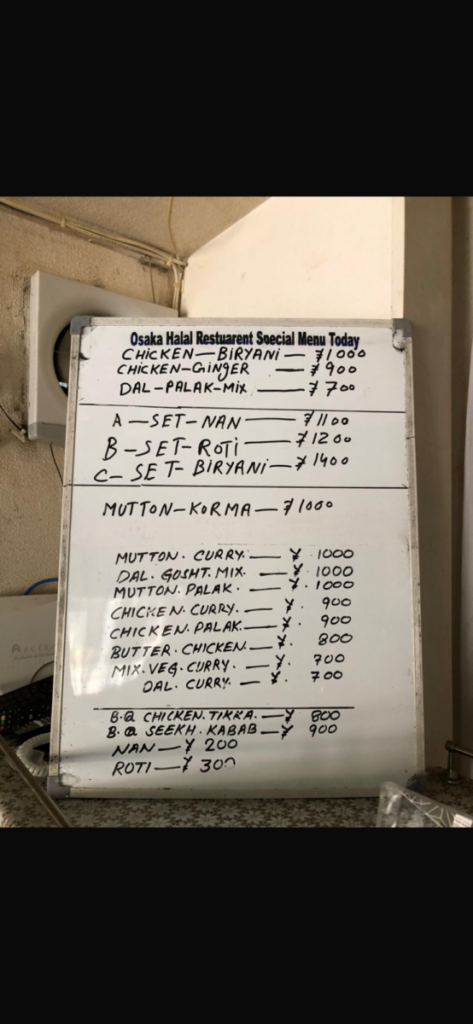 Osaka Halal Restuarent Special Menu Today
CHICKEN-BIRYANI - ¥1000
CHICKEN-GINGER - ¥900
DAL-PALAK-MIX - ¥700
A-SET-NAN - ¥1100
B-SET-ROTI - ¥1200
C-SET-BIRYANI - ¥1400
MUTTON-KORMA - ¥1000
MUTTON. CURRY. - ¥. 1000
DAL. GOSHT. MIX. - ¥. 1000
MUTTON. PALAK. - ¥. 1000
CHICKEN. CURRY. - ¥. 900
CHICKEN. PALAK. - ¥. 900
BUTTER. CHICKEN. - ¥. 800
MIX. VEG. CURRY. - ¥. 700
DAL. CURRY. - ¥. 700
B.Q CHICKEN. TIKKA. - ¥ 800
B.Q SEEKH. KABAB - ¥ 900
NAN - ¥ 200
ROTI - ¥ 300